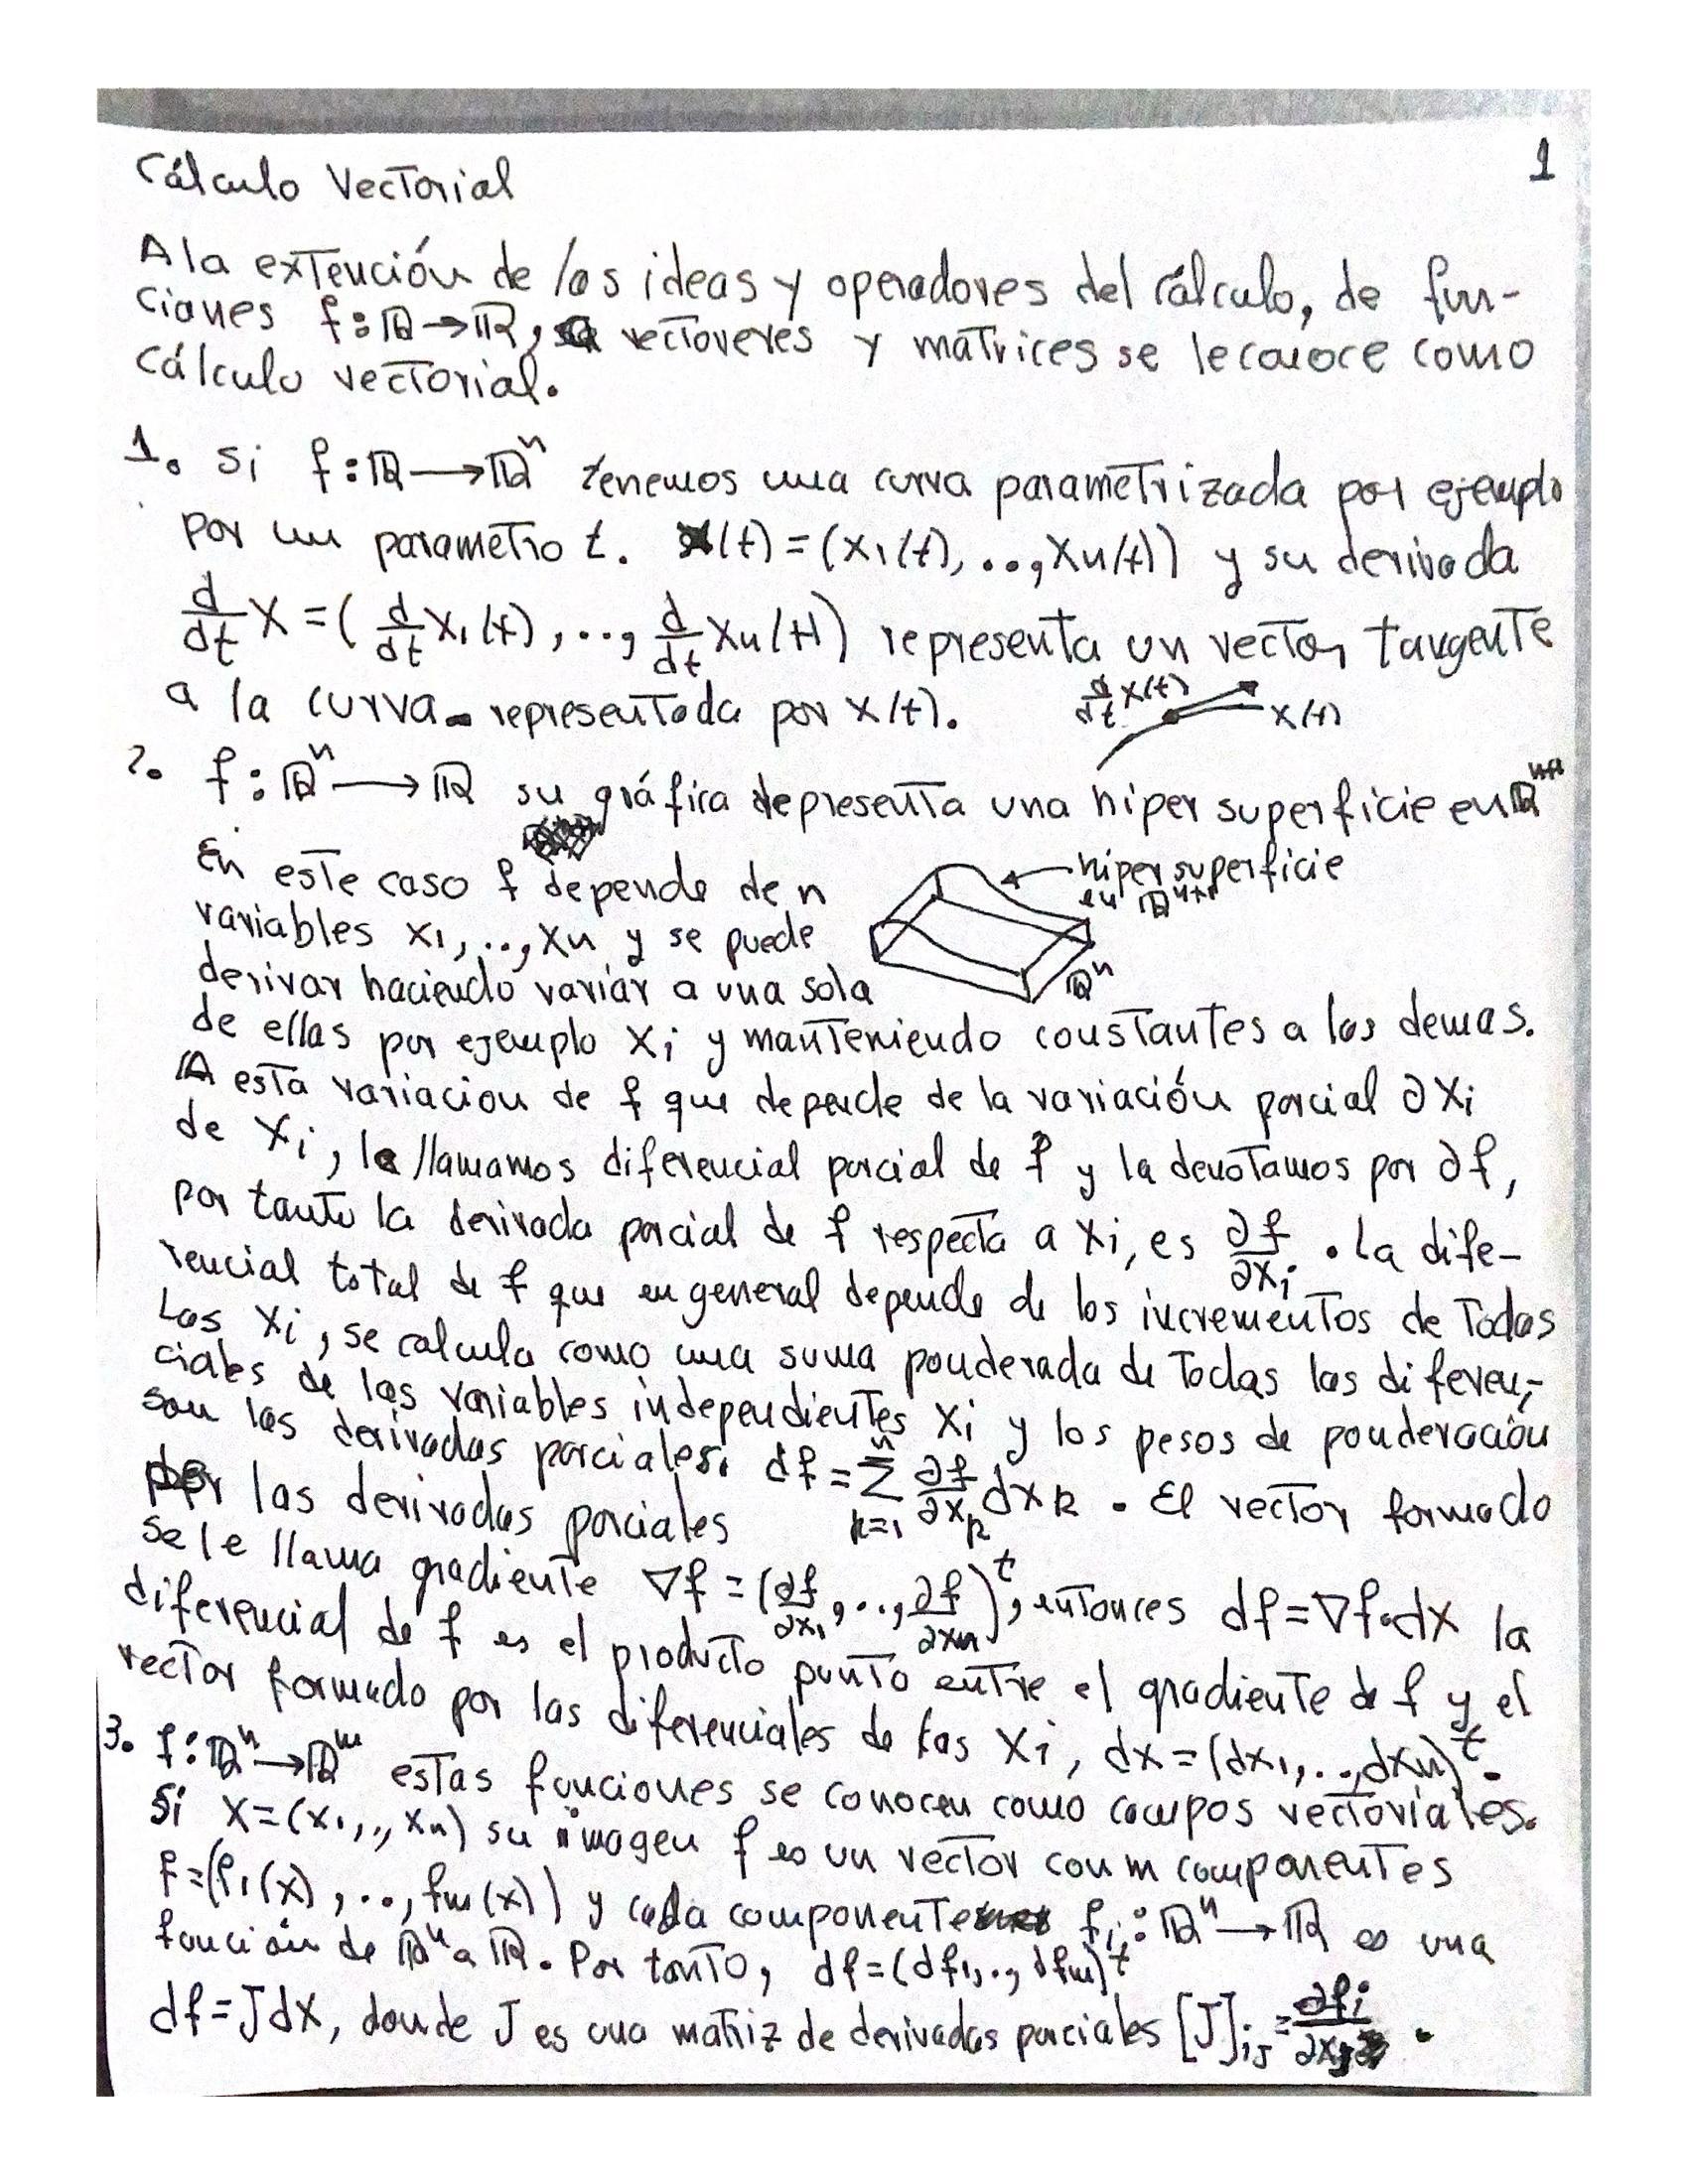 Cálculo Vectorial
1
A la extención de las ideas y operadores del cálculo, de fun-
ciones f:ℝ→ℝ, a vectoreres y matrices se le conoce como
cálculo vectorial.
1. Si f:ℝ→ℝⁿ tenemos una curva parametrizada por ejemplo
por un parametro t. x(t) = (x₁(t), .., xₙ(t)) y su derivada
d/dt x = ( d/dt x₁(t), .., d/dt xₙ(t) ) representa un vector tangente
a la curva representada por x(t).
d/dt x(t)
x(t)
2. f:ℝⁿ→ℝ su gráfica depresenta una hiper superficie en ℝⁿ⁺¹
En este caso f depende de n
variables x₁, .., xₙ y se puede
derivar haciendo variar a una sola
hiper superficie
en ℝⁿ⁺¹
ℝⁿ
de ellas por ejemplo xᵢ y manteniendo constantes a las demas.
A esta variacion de f que depende de la variación parcial ∂xᵢ
de xᵢ, la llamamos diferencial parcial de f y la denotamos por ∂f,
por tanto la derivada parcial de f respecta a xᵢ, es ∂f/∂xᵢ . La dife-
rencial total de f que en general depende de los incrementos de todas
Las xᵢ, se calcula como una suma ponderada de todas las diferen-
ciales de las variables independientes xᵢ y los pesos de ponderación
son las derivadas parciales. df = Σₖ₌₁ⁿ ∂f/∂xₖ dxₖ . El vector formado
por las derivadas parciales
se le llama gradiente ∇f = (∂f/∂x₁, .., ∂f/∂xₙ)ᵗ, entonces df = ∇f·dx la
diferencial de f es el producto punto entre el gradiente de f y el
vector formado por las diferenciales de las xᵢ, dx = (dx₁, .., dxₙ)ᵗ.
3. f:ℝⁿ→ℝᵐ estas funciones se conocen como campos vectoriales.
Si x=(x₁,.,xₙ) su imagen f es un vector con m componentes
f=(f₁(x), .., fₘ(x)) y cada componente fᵢ:ℝⁿ→ℝ es una
función de ℝⁿ a ℝ. Por tanto, df=(df₁,.,dfₘ)ᵗ
df=Jdx, donde J es una matriz de derivadas parciales [J]ᵢⱼ = ∂fᵢ/∂xⱼ .